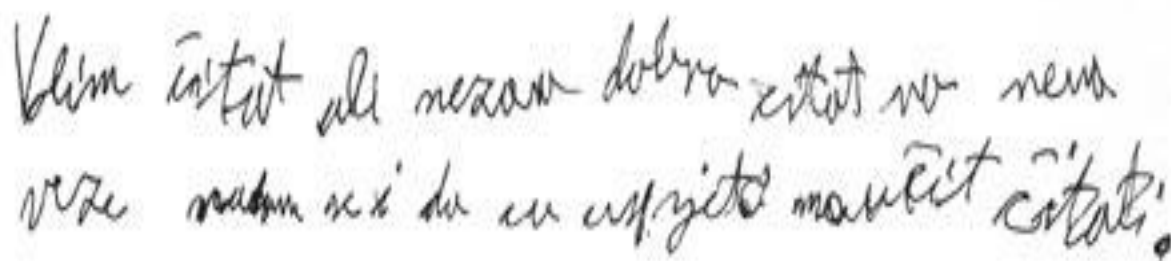 Volim čitat ali neznam dobro čitat no nema
veze nadam se i da ću uspjeti naučit čitati.